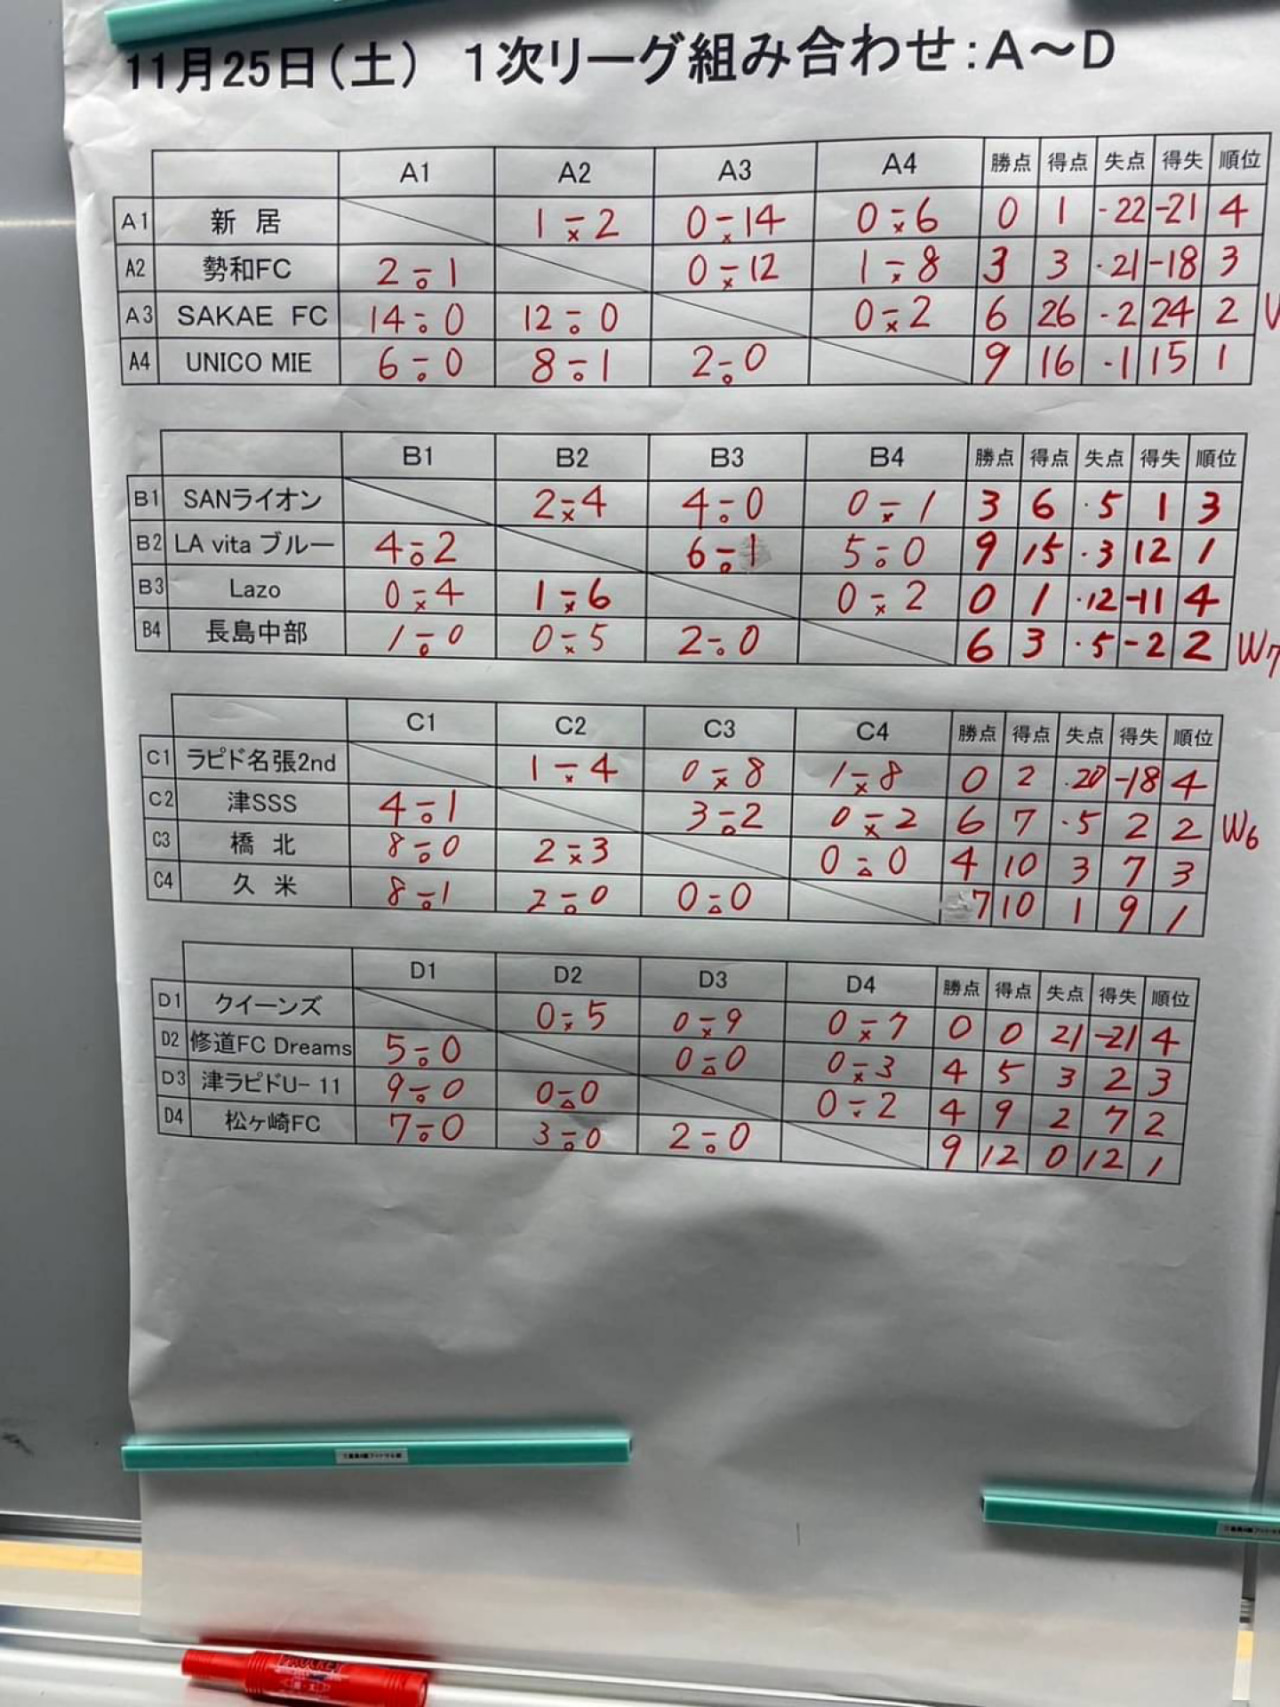 11月25日(土) 1次リーグ組み合わせ:A～D
A1 A2 A3 A4 勝点 得点 失点 得失 順位
A1 新 居 1-2 × 0-14 × 0-6 × 0 1 -22 -21 4
A2 勢和FC 2-1 ○ 0-12 × 1-8 × 3 3 -21 -18 3
A3 SAKAE FC 14-0 ○ 12-0 ○ 0-2 × 6 26 -2 24 2
A4 UNICO MIE 6-0 ○ 8-1 ○ 2-0 ○ 9 16 -1 15 1
B1 B2 B3 B4 勝点 得点 失点 得失 順位
B1 SANライオン 2-4 × 4-0 ○ 0-1 × 3 6 -5 1 3
B2 LA vita ブルー 4-2 ○ 6-1 ○ 5-0 ○ 9 15 -3 12 1
B3 Lazo 0-4 × 1-6 × 0-2 × 0 1 -12 -11 4
B4 長島中部 1-0 ○ 0-5 × 2-0 ○ 6 3 -5 -2 2 W7
C1 C2 C3 C4 勝点 得点 失点 得失 順位
C1 ラピド名張2nd 1-4 × 0-8 × 1-8 × 0 2 -20 -18 4
C2 津SSS 4-1 ○ 3-2 ○ 0-2 × 6 7 -5 2 2 W6
C3 橋 北 8-0 ○ 2-3 × 0-0 △ 4 10 3 7 3
C4 久 米 8-1 ○ 2-0 ○ 0-0 △ 7 10 1 9 1
D1 D2 D3 D4 勝点 得点 失点 得失 順位
D1 クイーンズ 0-5 × 0-9 × 0-7 × 0 0 21 -21 4
D2 修道FC Dreams 5-0 ○ 0-0 △ 0-3 × 4 5 3 2 3
D3 津ラピドU-11 9-0 ○ 0-0 △ 0-2 × 4 9 2 7 2
D4 松ヶ崎FC 7-0 ○ 3-0 ○ 2-0 ○ 9 12 0 12 1